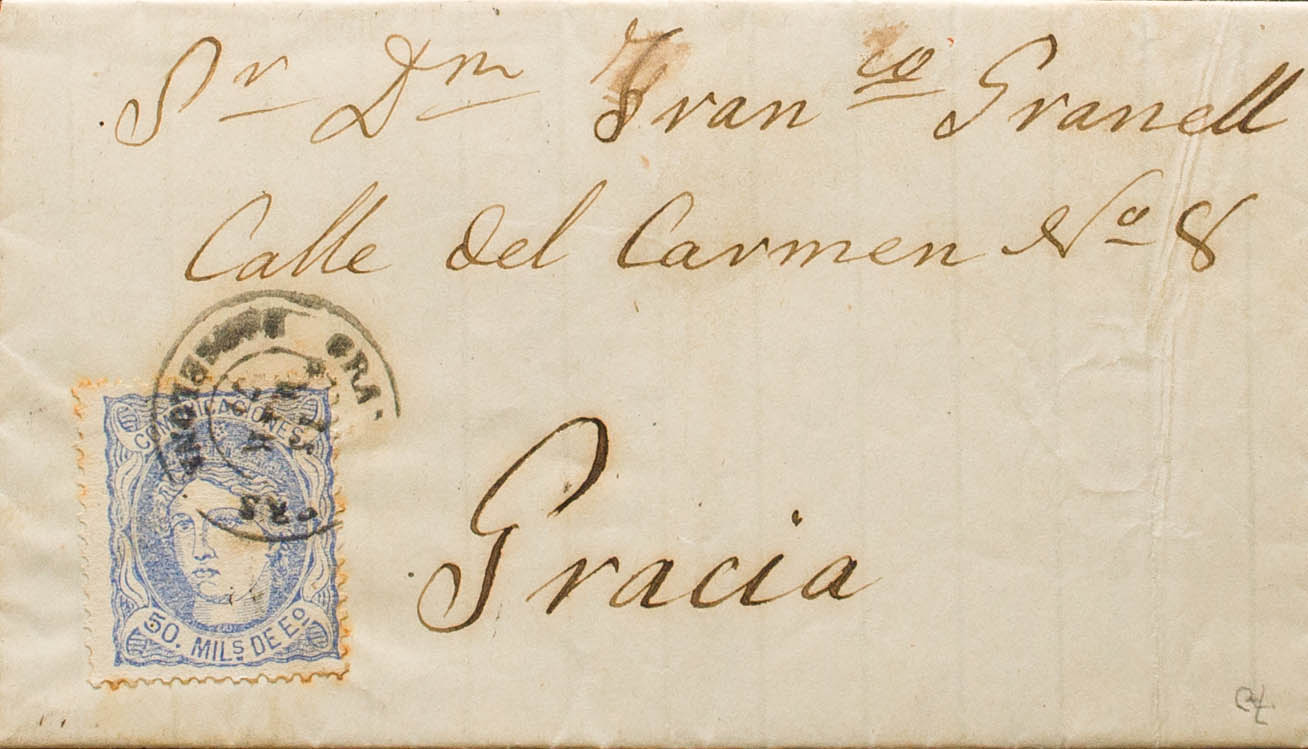 Sr Dn Franco Granell
Calle del Carmen No 8
Gracia
COMUNICACIONES
50. MILS. DE Eo.
BARCELONA
GRA